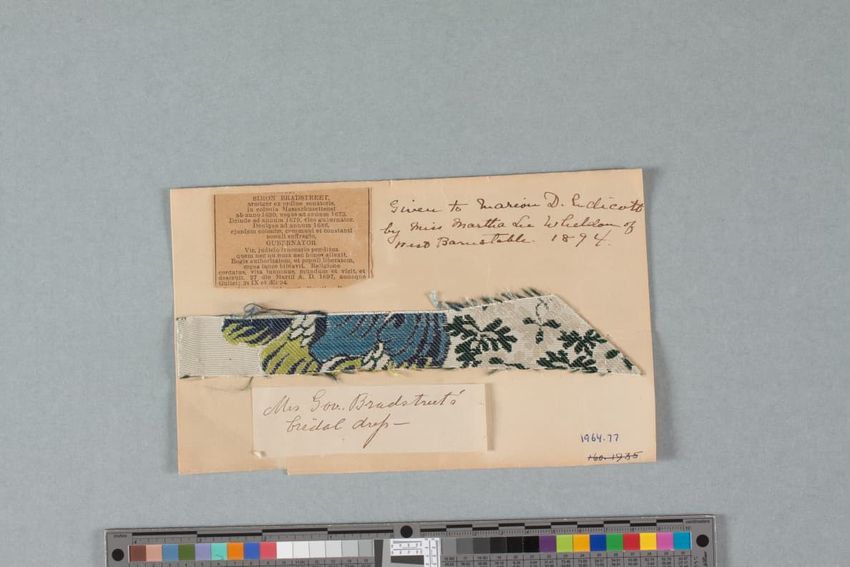 SIMON BRADSTREET,
armiger ex ordine senatoris,
in colonia Massachusettensi
ab anno 1630, usque ad annum 1673.
Deinde ad annum 1679, vice-gubernator.
Denique ad annum 1686,
ejusdem coloniæ, communi et constanti
populi suffragio,
GUBERNATOR.
Vir, judicio
quem nec nec honos allexit.
Regis authoritatem, et populi libertatem,
æqua lance libravit. Religione
cordatus, vita innocuus, mundum et vicit, et
deseruit, 27 die Martii A. D. 1697, annoque
Given to Marion D. Endicott
by Miss Martha Lee Wheldon of
West Barnstable. 1894.
Mrs Gov. Bradstreet's
bridal dress—
1964.77
160.1935
inches
centimeters